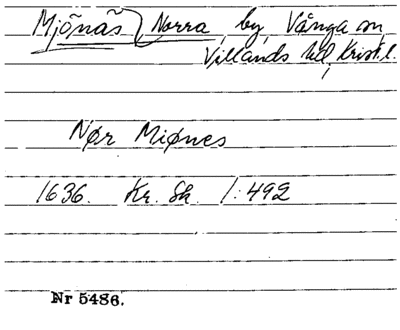 Mjönäs, Norra, by, Vånga sn
Villands hd, Krist.l.
Nør Miønes
1636. Kr. Sk. 1:492
Nr 5486.